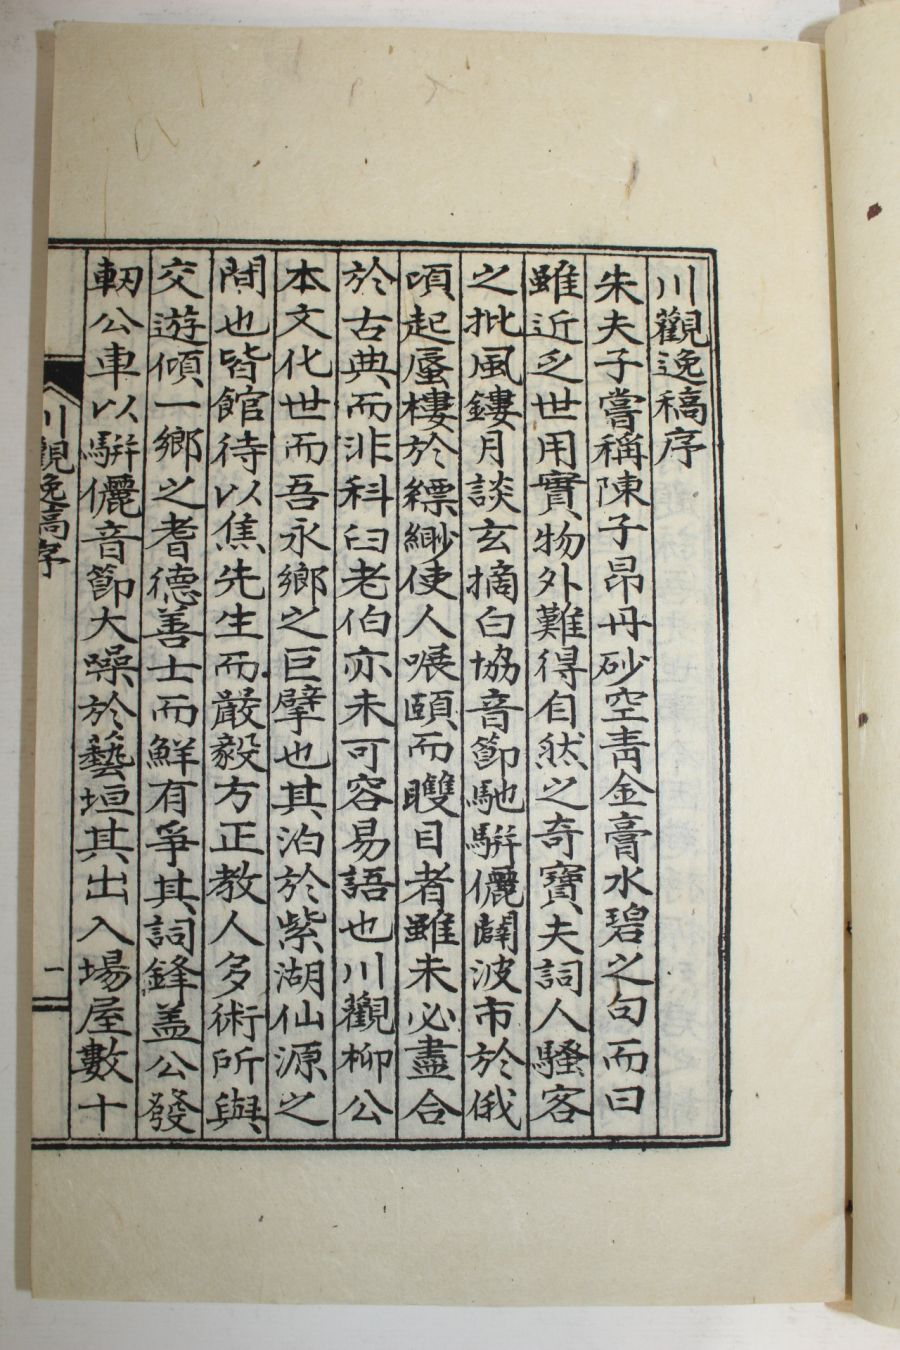 川觀逸稿序
朱夫子嘗稱陳子昂丹砂空靑金膏水碧之句而曰
雖近乏世用實物外難得自然之奇寶夫詞人騷客
之批風鏤月談玄摘白協音節馳騈儷闢波市於俄
頃起蜃樓於縹緲使人喉頤而雙目者雖未必盡合
於古典而非科臼老伯亦未可容易語也川觀柳公
本文化世而吾永鄉之巨擘也其泊於紫湖仙源之
間也皆館待以焦先生而嚴毅方正敎人多術所與
交遊傾一鄉之耆德善士而鮮有爭其詞鋒盖公發
軔公車以騈儷音節大噪於藝垣其出入場屋數十
川觀逸稿序
一